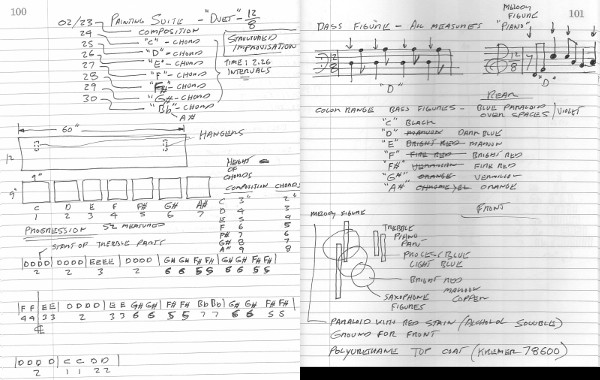 100
02/23 - PAINTING SUITE - "DUET" - 12/8
24 COMPOSITION
25 "C" - CHORD
26 "D" - CHORD
27 "E" - CHORD
28 "F" - CHORD
29 "F#" - CHORD
30 "G#" - CHORD
"Bb" - CHORD
A#
STRUCTURED
IMPROVISATION
TIME: 2.26
INTERVALS
60"
HANGERS
12
9"
9"
C D E F F# G# A#
1 2 3 4 5 6 7
HEIGHT
OF
CHORDS
COMPOSITION CHORDS
C 3"
D 4
E 5
F 6 5
F# 7 6
G# 8 7
A# 9 8
PROGRESSION 52 MEASURES
START OF TREBLE PARTS
DDDD DDDD EEEE DDDD G#G# F#F# G#G# F#F#
2 2 3 2 6 6 5 5 6 6 5 5
FF EE DDDD EE G#G# F#F# BbBb G#G# F#F#
44 33 2 33 66 55 77 66 55
DDDD CC DD
2 11 22
101
BASS FIGURE - ALL MEASURES
MELODY
FIGURE
"PIANO"
12
8
12
8
"D"
"D"
REAR
COLOR RANGE BASS FIGURES - BLUE PARALOID
OVER SPACES / VIOLET
"C" BLACK
"D" MAROON DARK BLUE
"E" BRIGHT RED MAROON
"F" FIRE RED BRIGHT RED
"F#" VERMILION FIRE RED
"G#" ORANGE VERMILION
"A#" CHROME YEL ORANGE
FRONT
MELODY FIGURE
TREBLE
PIANO
PART
PROCESS BLUE
LIGHT BLUE
BRIGHT RED
MAROON
COPPER
SAXOPHONE
FIGURES
PARALOID WITH RED STAIN (ALCOHOL SOLUBLE)
GROUND FOR FRONT
POLYURETHANE TOP COAT (KREMER 78600)